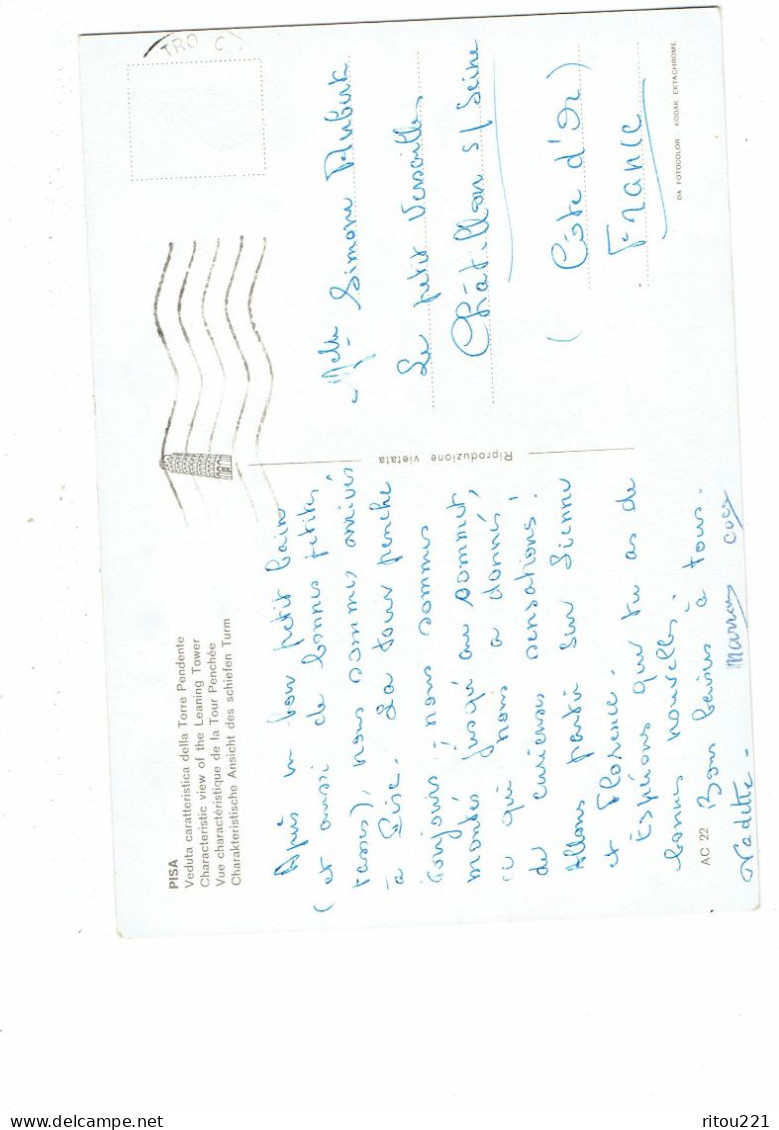 PISA
Veduta caratteristica della Torre Pendente
Characteristic view of the Leaning Tower
Vue charactéristique de la Tour Penchée
Charakteristische Ansicht des schiefen Turm
Après un bon petit bain
(et aussi de bonnes petites
tasses), nous sommes arrivés
à Pise. La tour penche
toujours ; nous sommes
montés jusqu'au sommet,
ce qui nous a donné
de curieuses sensations !
Allons partir sur Sienne
et Florence.
Espérons que tu as de
bonnes nouvelles.
AC 22 Bons baisers à tous.
Nadette.
Riproduzione vietata
TRO C
Melle Simone Aubert
Le petit Versailles
Châtillon s/ Seine
(Côte d'Or)
FRANCE
DA FOTOCOLOR KODAK EKTACHROME
ritou221